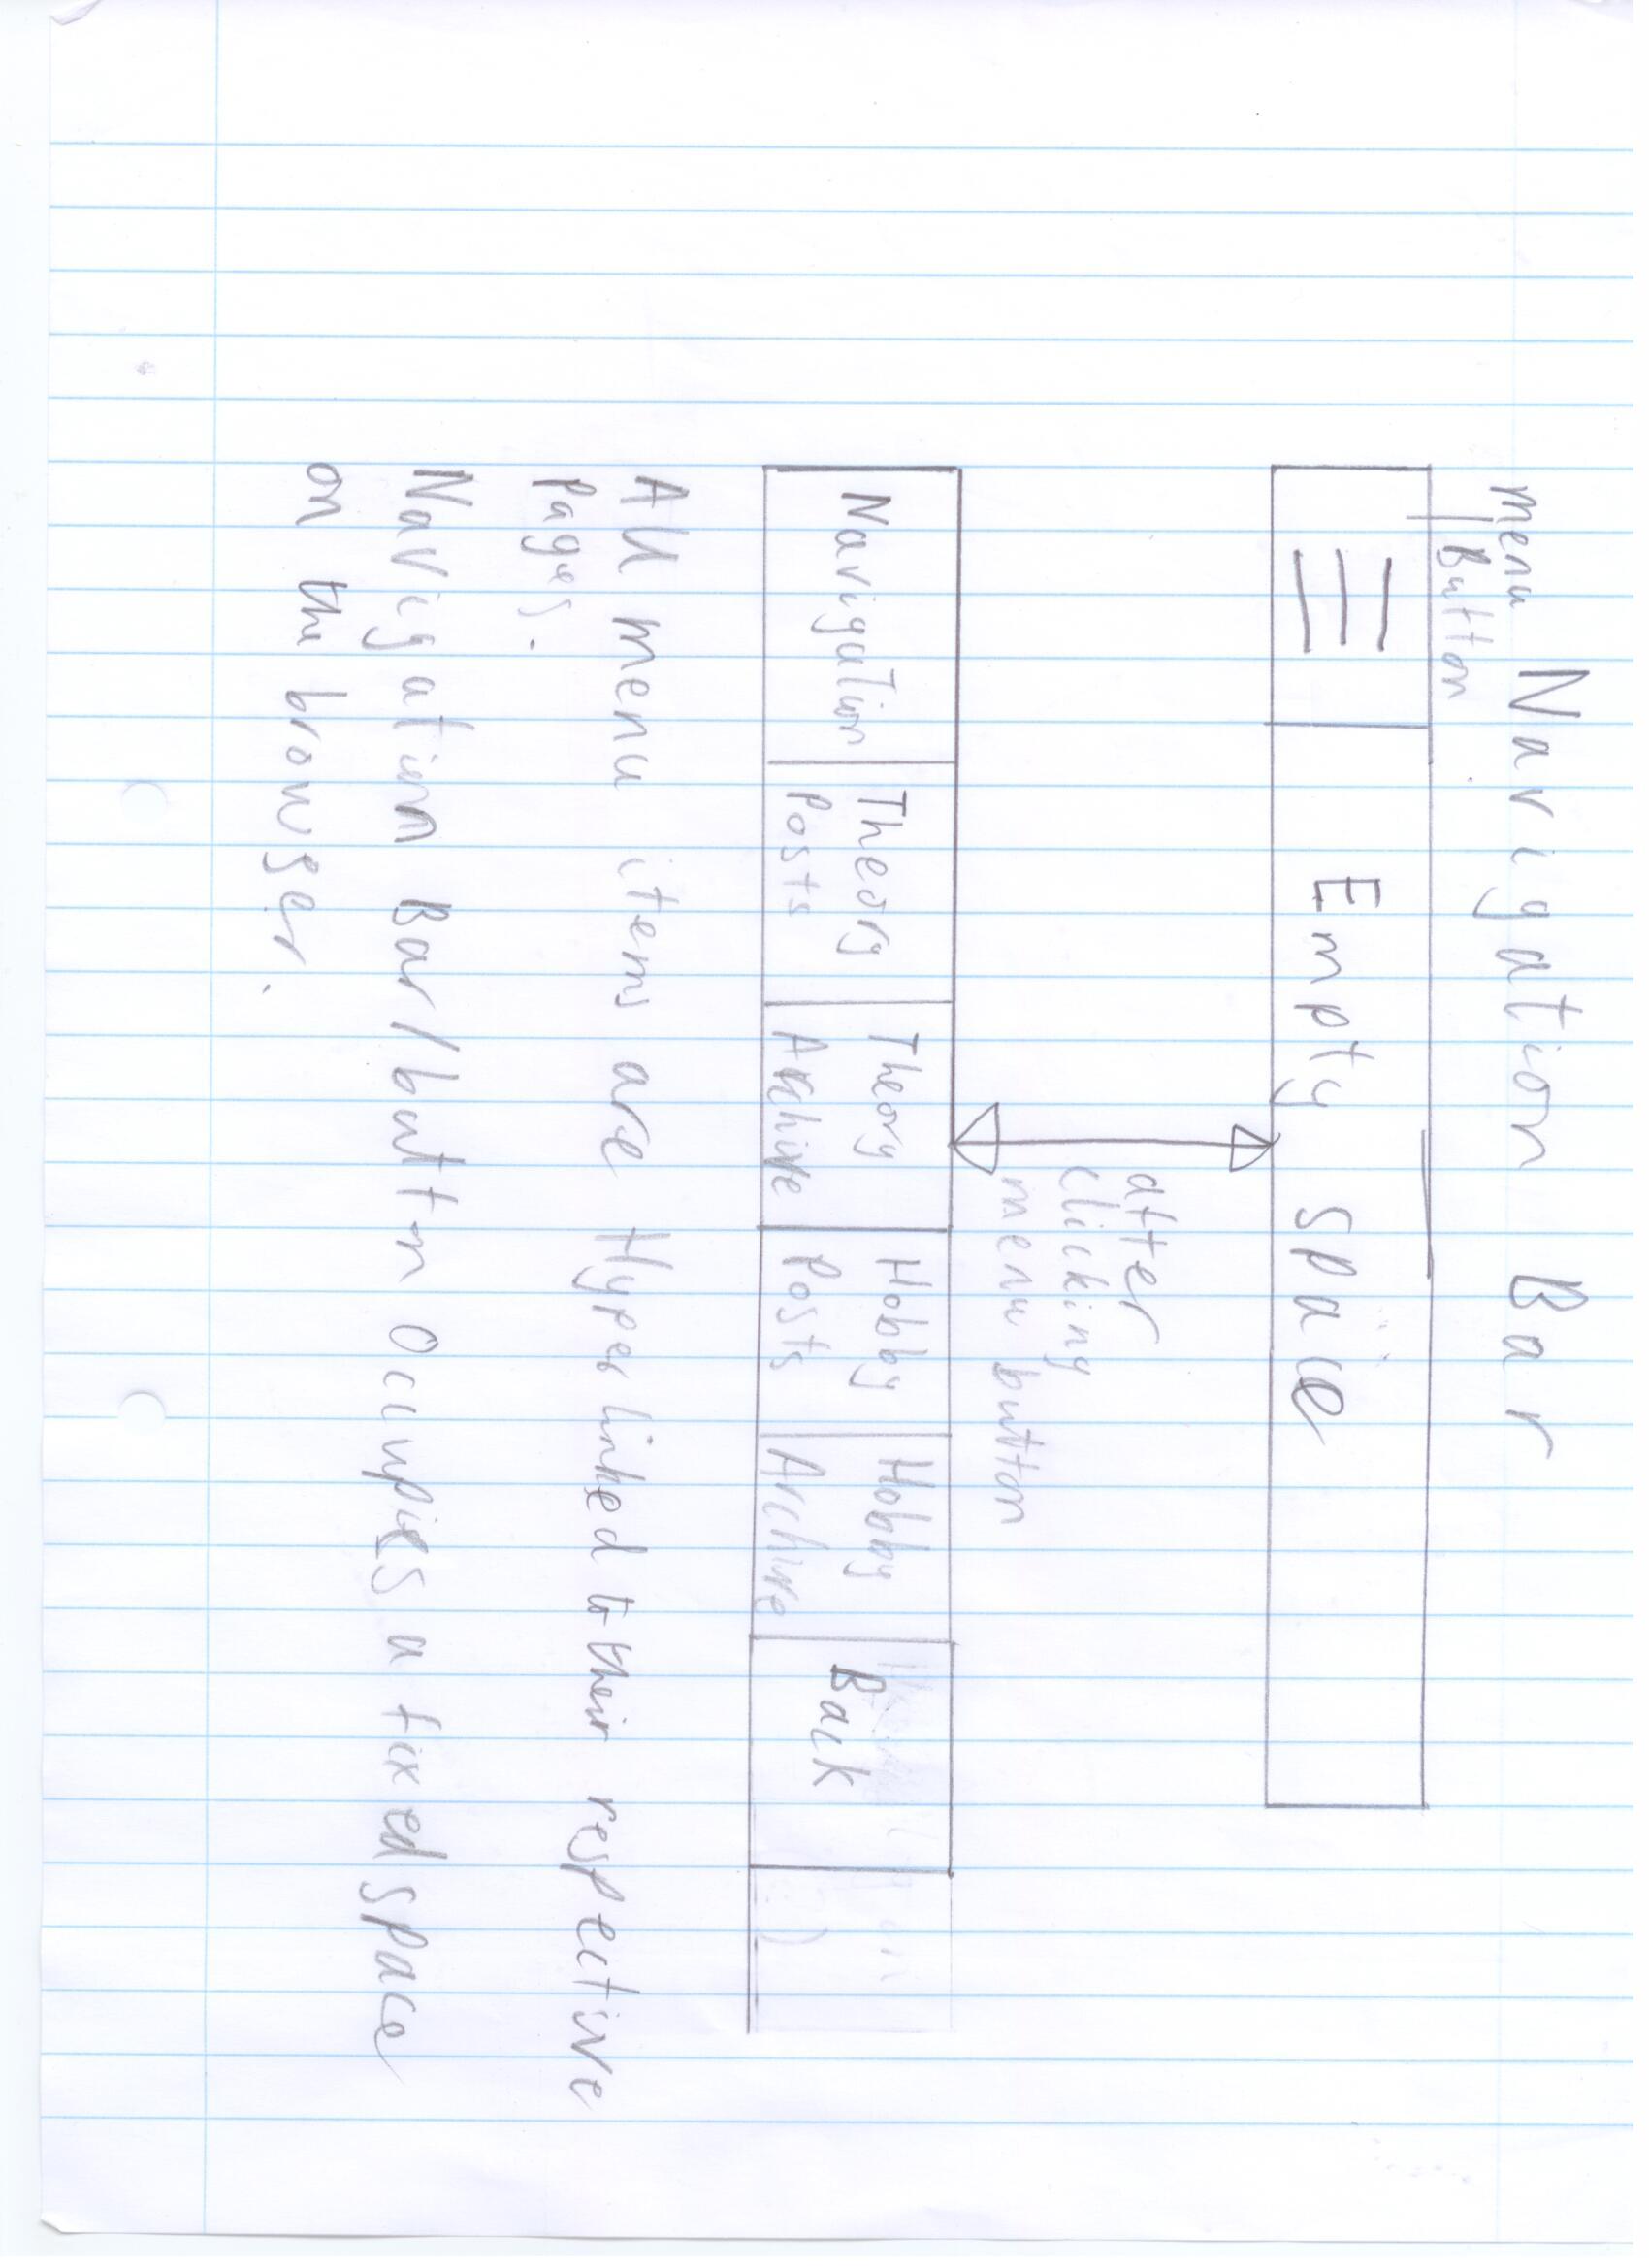 Navigation Bar
menu
Button
Empty Space
after
clicking
menu button
Navigation
Theory
Posts
Theory
Archive
Hobby
Posts
Hobby
Archive
Back
All menu items are Hyper linked to their respective
Pages.
Navigation Bar/button Occupies a fixed space
on the browser.